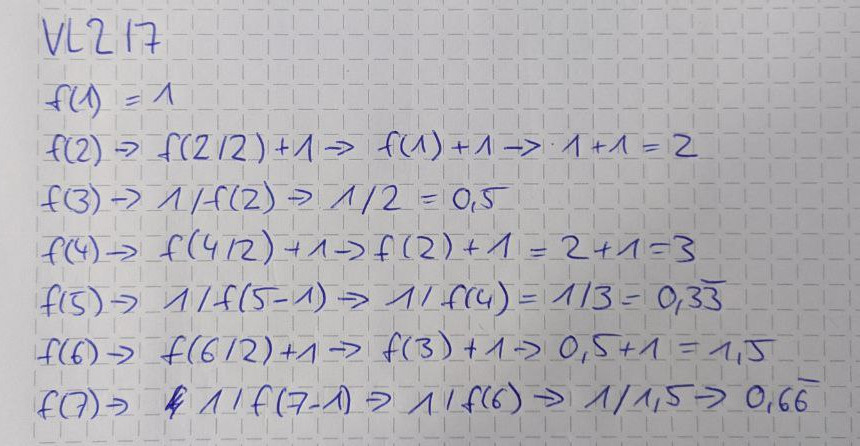 VL217
f(1) = 1
f(2) → f(2/2)+1 → f(1)+1 → 1+1 = 2
f(3) → 1/f(2) → 1/2 = 0,5
f(4) → f(4/2)+1 → f(2)+1 = 2+1=3
f(5) → 1/f(5-1) → 1/f(4) = 1/3 = 0,33̅
f(6) → f(6/2)+1 → f(3)+1 → 0,5+1 = 1,5
f(7) → 1/f(7-1) → 1/f(6) → 1/1,5 → 0,66̅